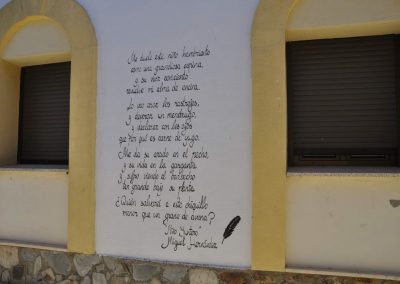 Me duele este niño hambriento
como una grandiosa espina,
y su vivir ceniciento
revuelve mi alma de encina.
Lo veo arar los rastrojos,
y devorar un mendrugo,
y declarar con los ojos
que por qué es carne de yugo.
Me da su arado en el pecho,
y su vida en la garganta,
y sufro viendo el barbecho
tan grande bajo su planta.
¿Quién salvará a este chiquillo
menor que un grano de avena?
"Niño Yuntero"
Miguel Hernández